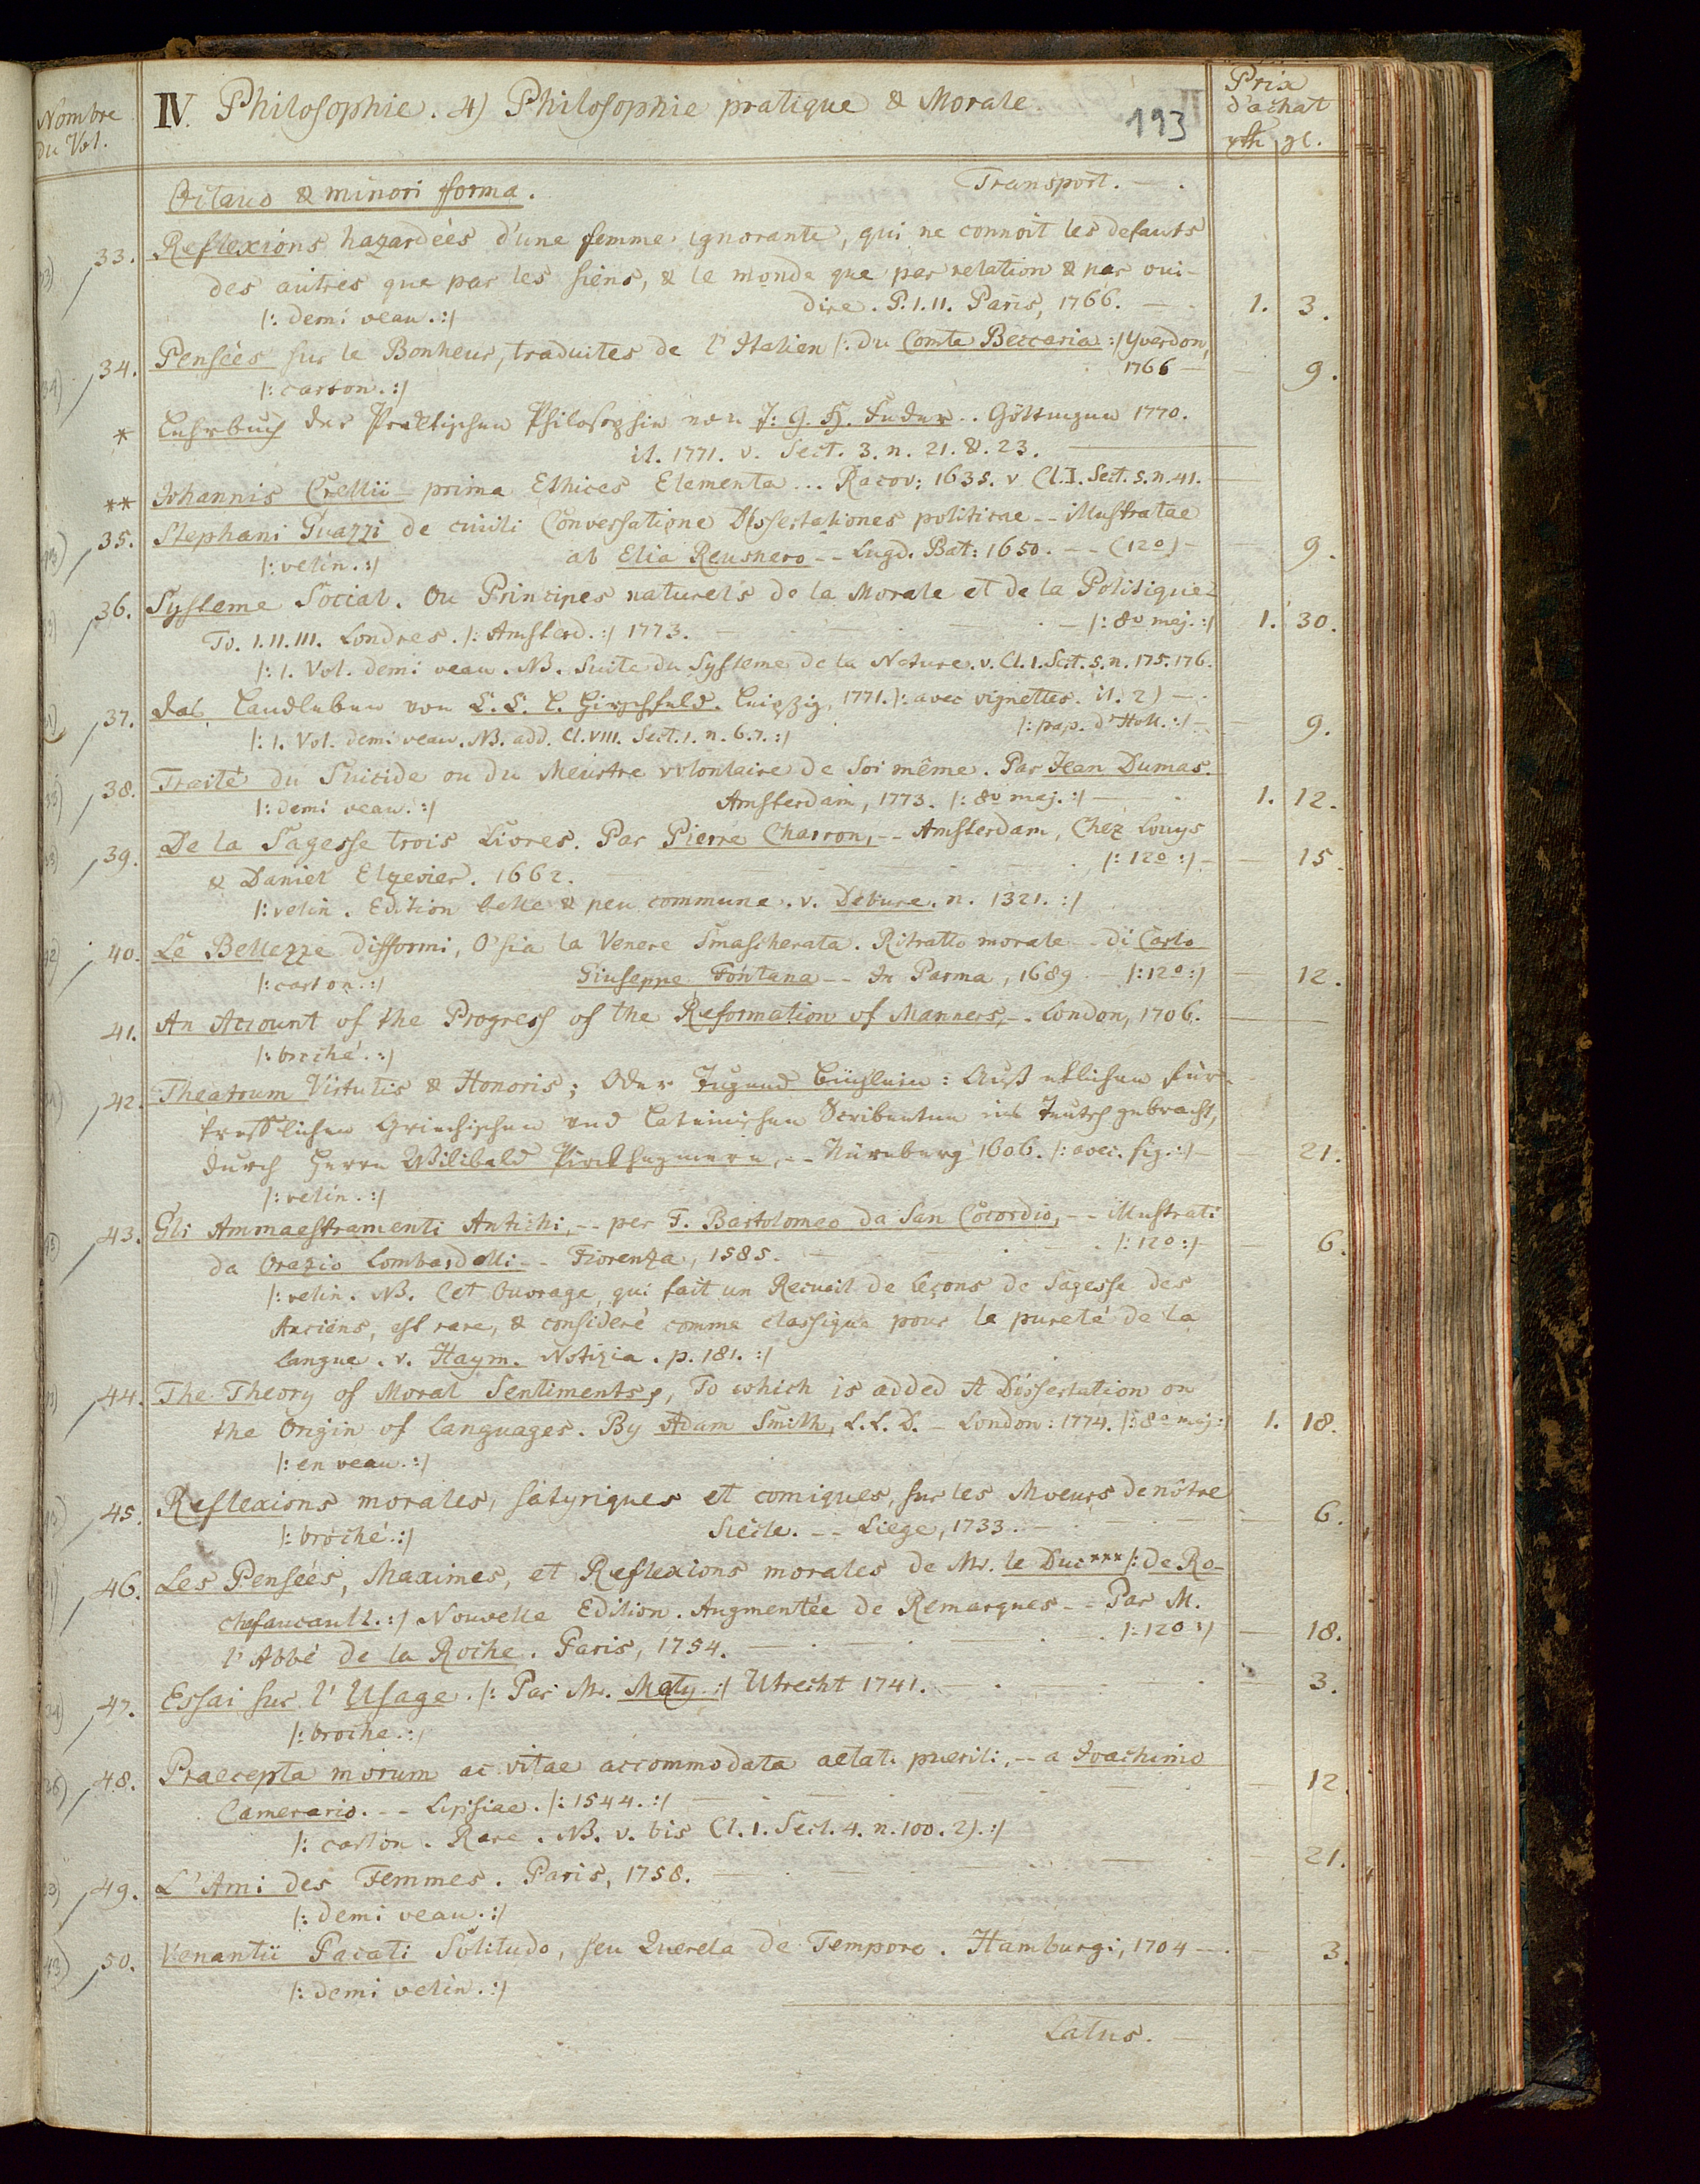 Nombre
du Vol.
IV. Philosophie. 4) Philosophie pratique & Morale.
193
Prix
d'achat
rth gl.
Octavo & minori forma.
Transport. — .
33. Reflexions hazardées d'une femme ignorante, qui ne connoit les defauts
des autres que par les siens, & le monde que par relation & par oui-
dire. P. I. II. Paris, 1766. — - 1. 3.
|: demi veau. :|
34. Pensées sur le Bonheur, traduites de l'Italien |: du Comte Beccaria :| Yverdon,
1766 — — 9.
|: carton. :|
* Lehrbuch der Praktischen Philosophie von J: G. H. Feder .. Göttingen 1770.
it. 1771. v. Sect. 3. n. 21. &. 23. —
** Johannis Crellii prima Ethices Elementa ... Racov: 1635. v Cl. I. Sect. 5. n. 41. —
35. Stephani Guazzi de civili Conversatione Dissertationes politicae -- illustratae
ab Elia Reusnero -- Lugd. Bat: 1650. -- (12º) — — 9.
|: velin. :|
36. Systeme Social. Ou Principes naturels de la Morale et de la Politique-
To. I. II. III. Londres. |: Amsterd. :| 1773. — |: 8º maj. :| 1. 30.
|: 1. Vol. demi veau. NB. Suite du Systeme de la Nature. v. Cl. I. Sect. 5. n. 175. 176.
37. Das Landleben von C. C. L. Hirschfeld. Leipzig, 1771. |: avec vignettes. it. 2) — .
|: pap. d'Holl. :| — — 9.
|: 1. Vol. demi veau. NB. add. Cl. VIII. Sect. 1. n. 6. 7. :|
38. Traité du Suicide ou du Meurtre volontaire de soi même. Par Jean Dumas.
Amsterdam, 1773. |: 8º maj. :| — . 1. 12.
|: demi veau. :|
39. De la Sagesse trois Livres. Par Pierre Charron, -- Amsterdam, Chez Louys
& Daniel Elzevier. 1662. — |: 12º :| — — 15.
|: velin. Edition belle & peu commune. v. Debure. n. 1321. :|
40. Le Bellezze difformi, O'sia la Venere Smascherata. Ritratto morale -- di Carlo
Giuseppe Fontana -- In Parma, 1689 — |: 12º :| — 12.
|: carton. :|
41. An Account of the Progress of the Reformation of Manners, -. London, 1706. —
|: broché. :|
42. Theatrum Virtutis & Honoris; Oder Tugend Büchlein: Auß etlichen für-
trefflichen Griechischen und Lateinischen Scribenten ins Teutsch gebracht,
durch Herrn Wilibald Pirckheymern, -- Nürnberg 1606. |: avec. fig. :| — — 21.
|: velin. :|
43. Gli Ammaestramenti Antichi, -- per F. Bartolomeo da San Cocordio, -- illustrati
da Orazio Lombardelli -- Fiorenza, 1585. — |: 12º :| — — 6.
|: velin. NB. Cet Ouvrage, qui fait un Recueil de leçons de Sagesse des
Anciens, est rare, & consideré comme classique pour la pureté de la
langue. v. Haym. Notizia. p. 181. :|
44. The Theory of Moral Sentiments, To which is added A Dissertation on
the Origin of languages. By Adam Smith, L. L. D. - London: 1774. |: 8º maj :| 1. 18.
|: en veau. :|
45. Reflexions morales, satyriques et comiques, sur les Moeurs de nôtre
Siécle. -- Liege, 1733. — — 6.
|: broché. :|
46. Les Pensées, Maximes, et Reflexions morales de Mr. le Duc*** |: de Ro-
chefaucault. :| Nouvelle Edition. Augmentée de Remarques -- Par M.
l'Abbé de la Roche. Paris, 1754. — |: 12º :| — 18.
47. Essai sur l'Usage. |: Par Mr. Maty :| Utrecht 1741. — — 3.
|: broche. :|
48. Praecepta morum ac vitae accommodata aetati puerili, -- a Ioachimo
Camerario. -- Lipsiae. |: 1544. :| — — 12.
|: carton. Rare. NB. v. bis Cl. I. Sect. 4. n. 100. 2). :|
49. L'Ami des Femmes. Paris, 1758. — — 21.
|: demi veau. :|
50. Venantii Pacati Solitudo, seu Querela de Tempore. Hamburgi, 1704 — . — 3.
|: demi velin. :|
Latus. —